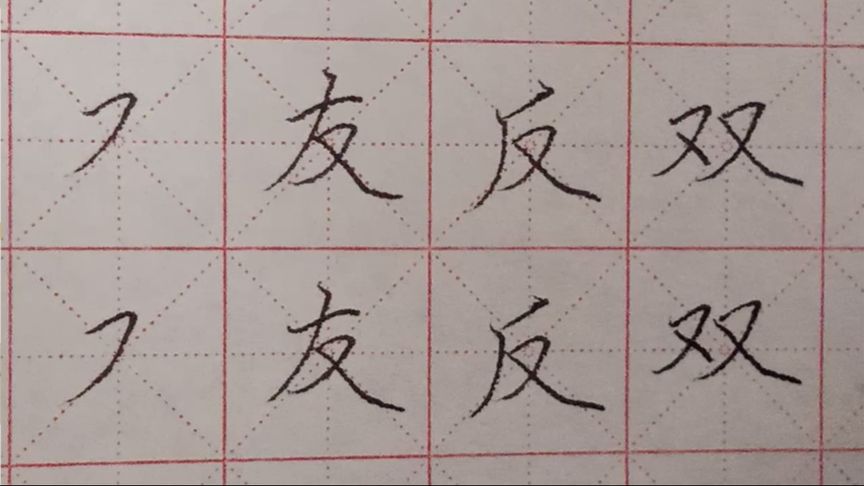 ㇇友反双
㇇友反双